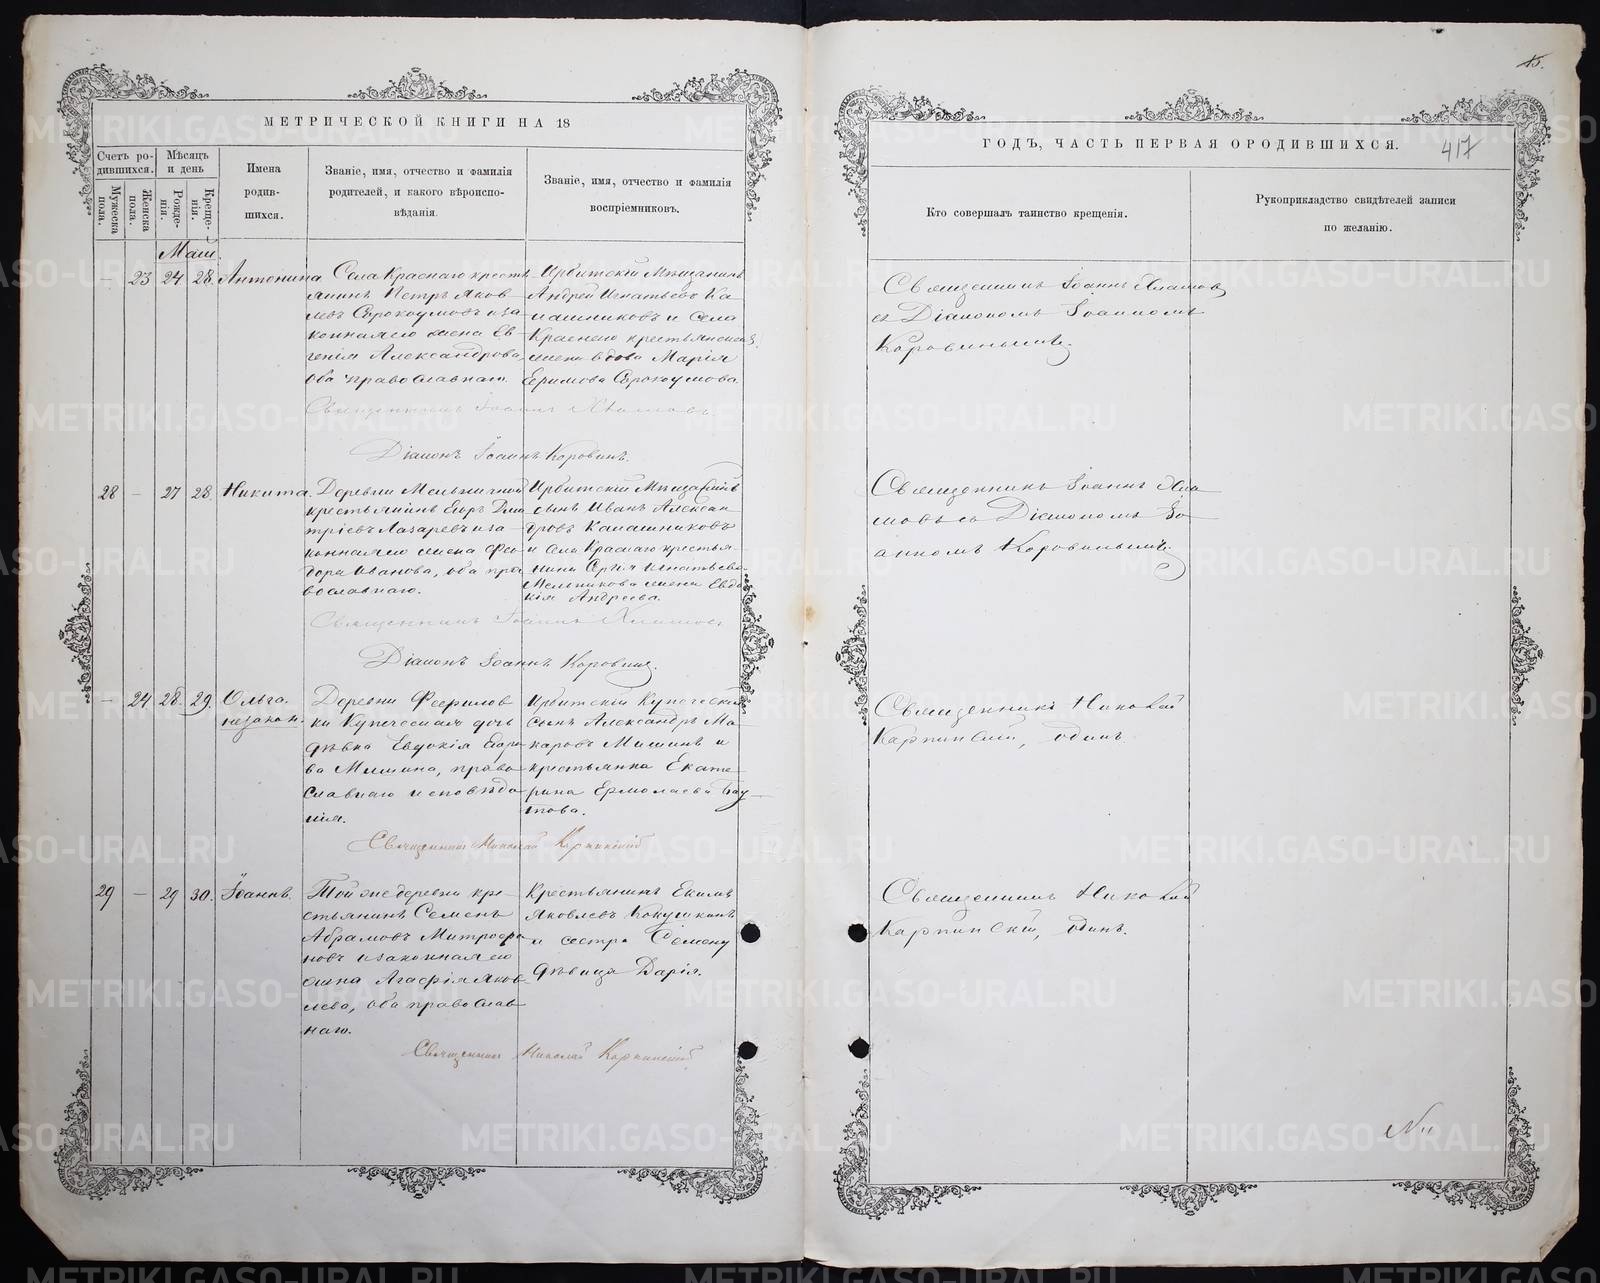 15.
МЕТРИЧЕСКОЙ КНИГИ НА 18
Счетъ ро-
дившихся.
Мѣсяцъ
и день
Мужеска
пола.
Женска
пола.
Рожде-
нія.
Креще-
нія.
Имена
родив-
шихся.
Званіе, имя, отчество и фамилія
родителей, и какого вѣроиспо-
вѣданія.
Званіе, имя, отчество и фамилія
воспріемниковъ.
Май.
— 23 24 28. Антонина
Села Краснаго кресть
янинъ Петръ Яков-
левъ Сорокоумовъ и за
конная его жена Ев-
генія Александрова,
оба православнаго.
Ирбитскій Мѣщанинъ
Андрей Игнатьевъ Ка
лашниковъ и Села
Краснаго крестьянская
жена вдова Марія
Ефимова Сорокоумова.
Священникъ Іоаннъ
Діаконъ Іоаннъ Коровинъ.
28 — 27 28. Никита.
Деревни Мельничной
крестьянинъ Егоръ Дми
тріевъ Лазаревъ и за
конная его жена Фео-
дора Иванова, оба пра
вославнаго.
Ирбитскій Мѣщанскій
сынъ Иванъ Алексан
дровъ Калашниковъ
и Села Краснаго крестья-
нина Сергія Игнатьева
Мельникова жена Евдо
кія Андреева.
Священникъ Іоаннъ
Діаконъ Іоаннъ Коровинъ.
— 24 28. 29. Ольга.
незакон.
Деревни
ки Купеческая дочь
дѣвка Евдокія Егоро
ва Мишина, право
славнаго исповѣда
нія.
Ирбитскій Купеческій
сынъ Александръ Ма
каровъ Мишинъ и
крестьянка Екате
рина Ермолаева
Священникъ Николай Карпинскій
29 — 29 30. Іоаннъ.
Той же деревни кре-
стьянинъ Семенъ
Абрамовъ Митрофа
новъ и законная его
жена Агафія Яков
лева, оба православ
наго.
Крестьянинъ Екимъ
Яковлевъ
и сестра Семену
дѣвица Дарія.
Священникъ Николай Карпинскій
ГОДЪ, ЧАСТЬ ПЕРВАЯ О РОДИВШИХСЯ.
417
Кто совершалъ таинство крещенія.
Рукоприкладство свидѣтелей записи
по желанію.
Священникъ Іоаннъ
съ Діакономъ Іоанномъ
Коровинымъ.
Священникъ Іоаннъ
съ Діакономъ Іо-
анномъ Коровинымъ.
Священникъ Николай
Карпинскій, одинъ.
Священникъ Николай
Карпинскій, одинъ.
METRIKI.GASO-URAL.RU